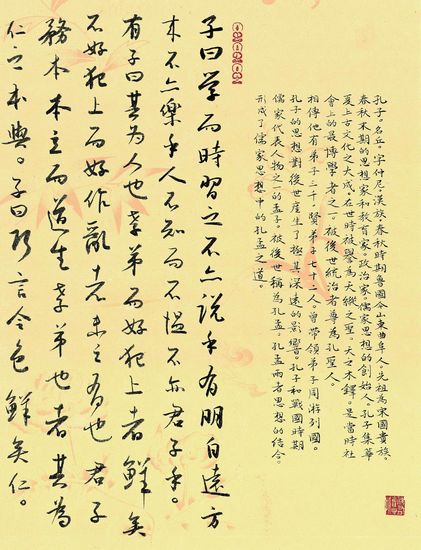 孔子。名丘，字仲尼。漢族。春秋時期魯國今山東曲阜人。先祖為宋國貴族。
春秋末期的思想家和教育家。政治家。儒家思想的創始人。孔子集華
夏上古文化之大成。在世時被譽為天縱之聖。天之木鐸。是當時社
會上的最博學者之一。被後世統治者尊為孔聖人。
相傳他有弟子三千，賢弟子七十二人。曾帶領弟子周游列國。
孔子的思想對後世產生了極其深遠的影響。孔子和戰國時期
儒家代表人物之一的孟子。被後世稱為孔孟。孔孟兩者思想的结合。
形成了儒家思想中的孔孟之道。
子曰学而時習之不亦說乎有朋自遠方
来不亦樂乎人不知而不愠不亦君子乎。
有子曰其为人也孝弟而好犯上者鲜矣
不好犯上而好作亂者未之有也君子
務本本立而道生孝弟也者其為
仁之本與。子曰巧言令色鲜矣仁。